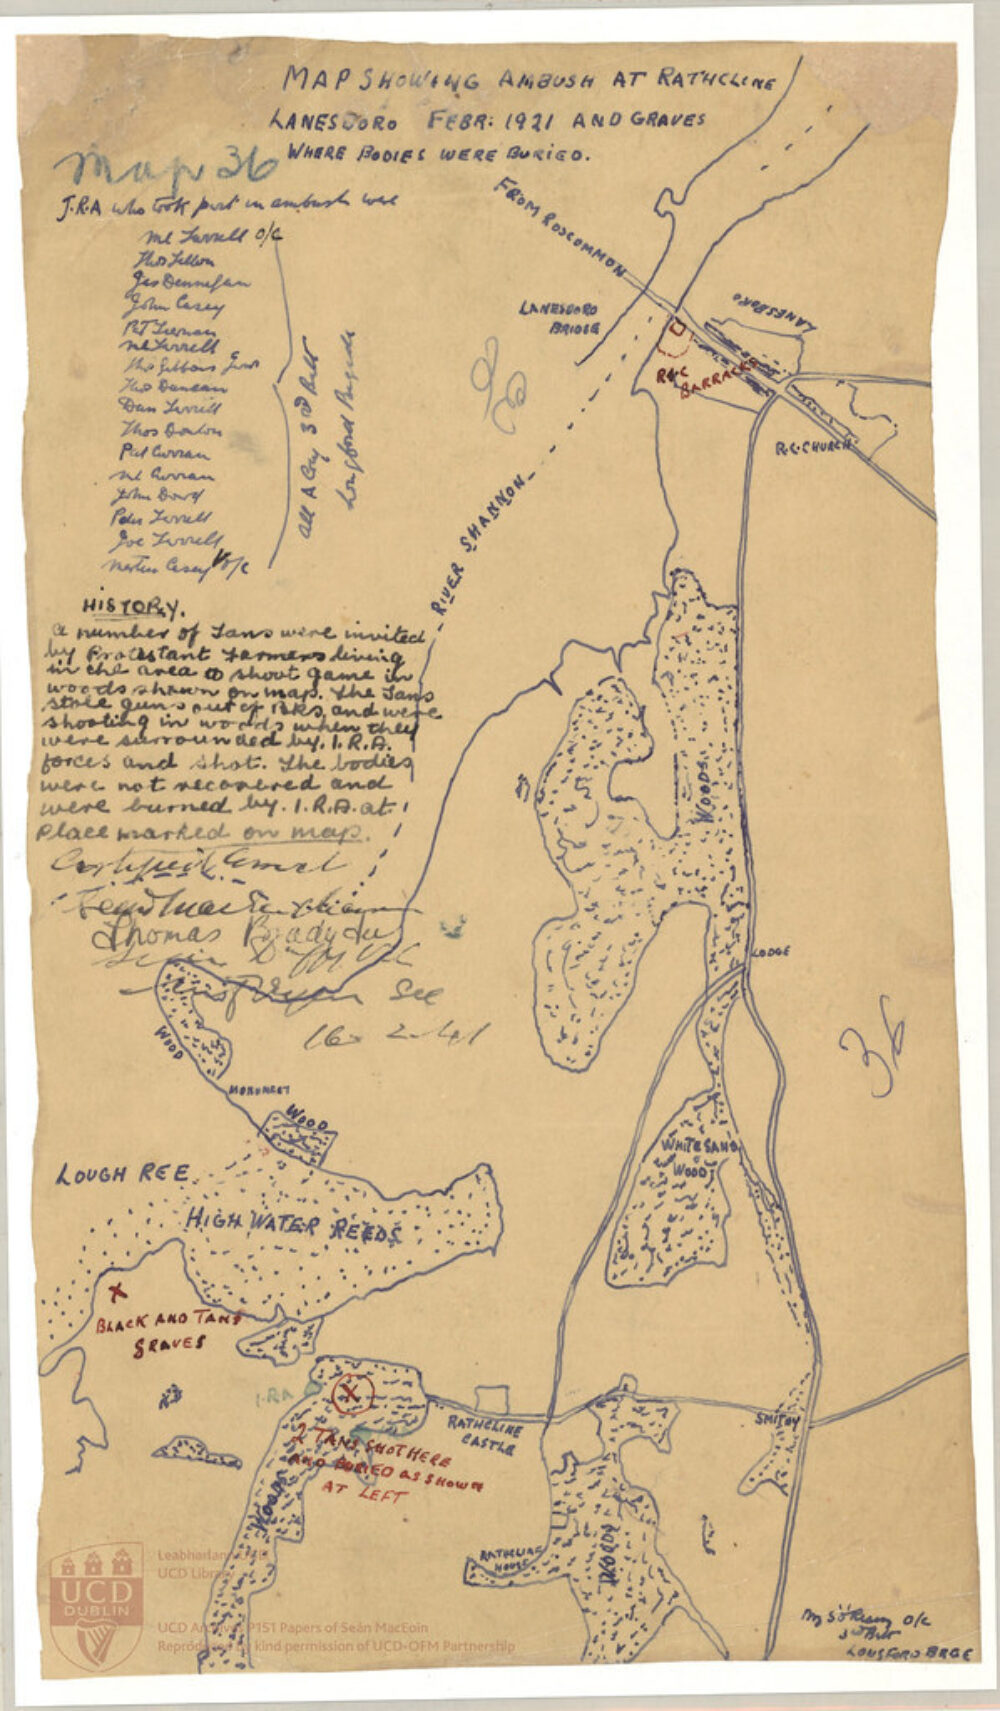 MAP SHOWING AMBUSH AT RATHCLINE
LANESBORO FEBR: 1921 AND GRAVES
WHERE BODIES WERE BURIED.
Map 36
I.R.A who took part in ambush were
Ml Farrell O/C
Thos Fallon
Jas Dennigan
John Casey
Pat Tiernan
Ml Farrell
Thos Gibbons Junr
Thos Duncan
Dan Farrell
Thos Donlon
Pat Curran
Ml Curran
John Dowd
Peter Farrell
Joe Farrell
Martin Casey V/O/C
All A Coy 3rd Batt
Longford Brigade
HISTORY.
A number of Tans were invited
by Protestant Farmers living
in the area to shoot game in
woods shown on map. The Tans
stole guns out of Bks, and were
shooting in woods when they
were surrounded by. I.R.A.
forces and shot. The bodies
were not recovered and
were burned by. I.R.A. at
Place marked on map.
Certified Correct
Thomas Brady
Sec
16 2-41
FROM ROSCOMMON
LANESBORO
BRIDGE
LANESBORO
R.I.C
BARRACKS
R.C. CHURCH
RIVER SHANNON
WOODS
LODGE
36
WOOD
MONUMENT
WOOD
WHITE SAND
WOODS
LOUGH REE
HIGH WATER REEDS
X
BLACK AND TANS
GRAVES
I.R.A
X
2 TANS SHOT HERE
AND BURIED AS SHOWN
AT LEFT
RATHCLINE
CASTLE
SMITHY
WOODS
RATHCLINE
HOUSE
WOODS
O/C
3rd Batt
LONGFORD BRGE
UCD
DUBLIN
UCD Library
UCD P151 Papers of Seán MacEoin
kind permission of UCD-OFM Partnership